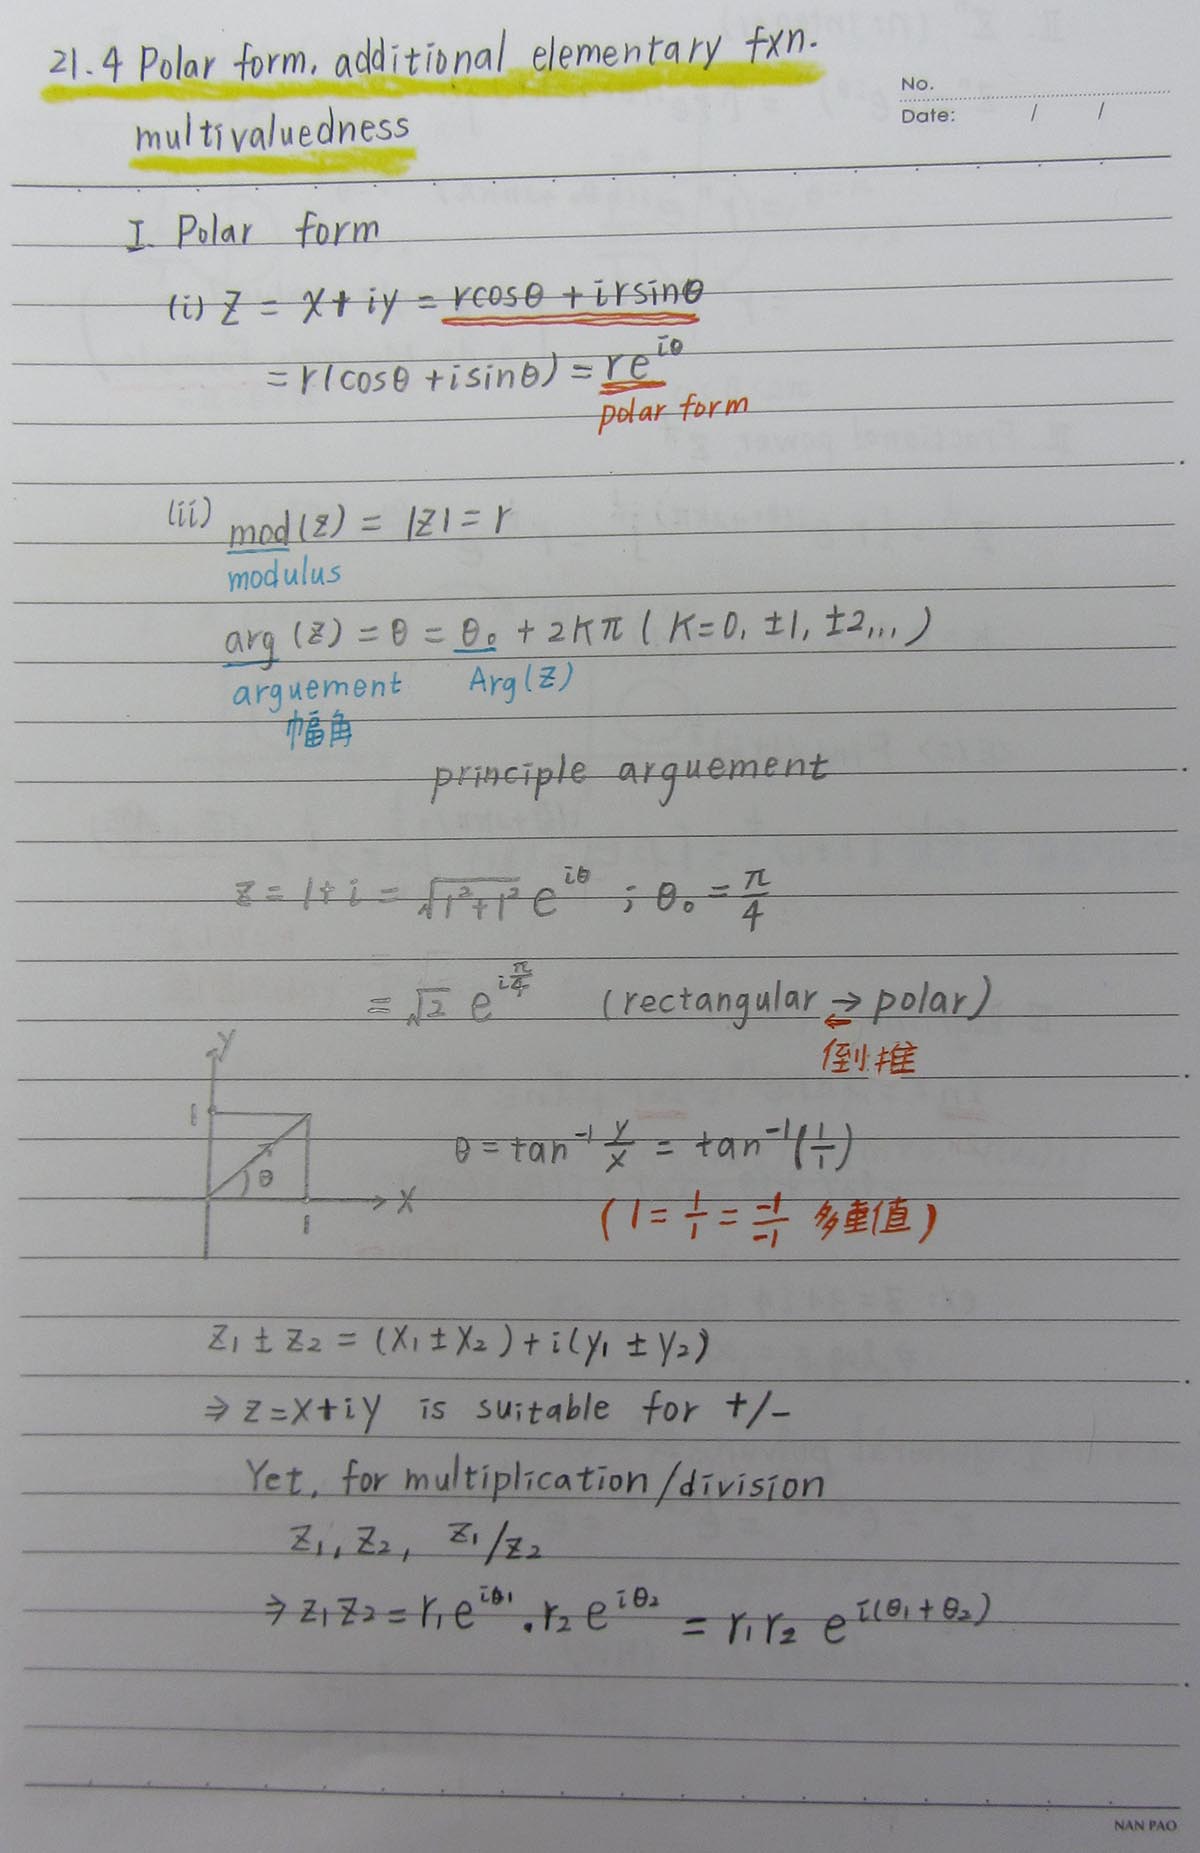 21.4 Polar form, additional elementary fxn.
multivaluedness
No.
Date: / /
I. Polar form
(i) z = x + iy = rcosθ + irsinθ
= r(cosθ + isinθ) = re^{iθ}
polar form
(ii) mod(z) = |z| = r
modulus
arg(z) = θ = θ₀ + 2Kπ ( K=0, ±1, ±2,... )
arguement Arg(z)
幅角
principle arguement
z = 1 + i = √(1²+1²) e^{iθ} ; θ₀ = π/4
= √2 e^{iπ/4} (rectangular → polar)
←
倒推
y
1
θ
x
1
θ = tan⁻¹ y/x = tan⁻¹(1/1)
( 1 = 1/1 = -1/-1 多重值 )
z₁ ± z₂ = (x₁ ± x₂) + i(y₁ ± y₂)
⇒ z = x + iy is suitable for +/-
Yet, for multiplication/division
z₁, z₂, z₁/z₂
⇒ z₁z₂ = r₁e^{iθ₁} · r₂e^{iθ₂} = r₁r₂ e^{i(θ₁+θ₂)}
NAN PAO